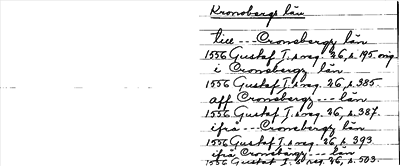 Kronobergs län
till --- Cronebergz län
1556 Gustaf I:s reg. 26, s. 195. orig.
i Cronebergz län
1556 Gustaf I:s reg. 26, s. 385.
aff Cronebergz --- län
1556 Gustaf I:s reg. 26, s. 387.
ifrå --- Cronebergz län
1556 Gustaf I:s reg. 26, s. 393
ifrå Cronebergz --- län
1556 Gustaf I:s reg. 26, s. 503.